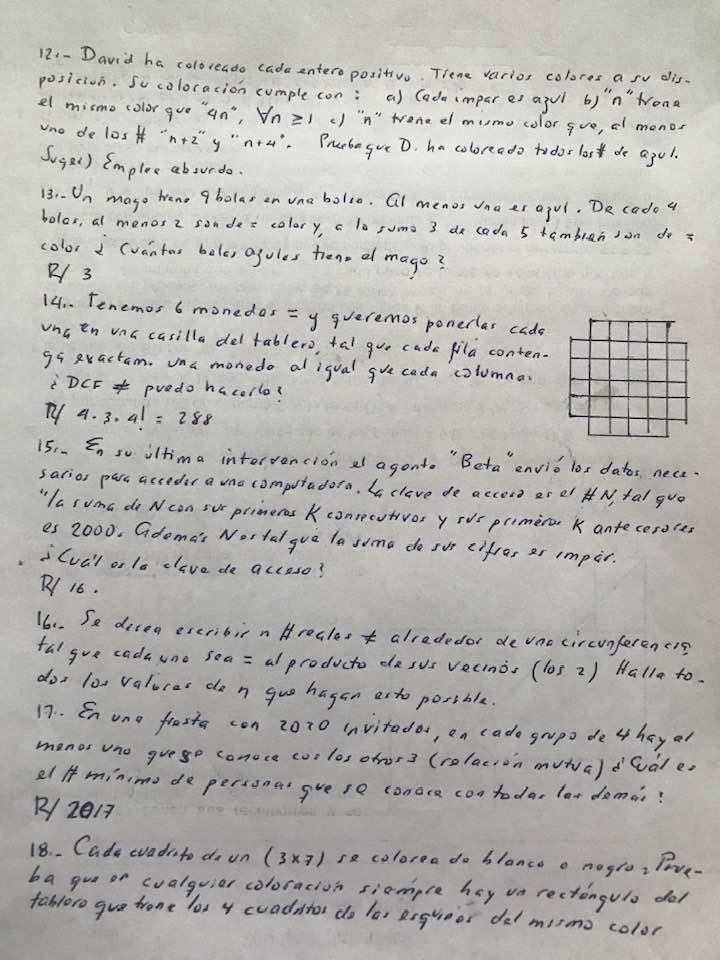 12.- David ha coloreado cada entero positivo. Tiene varios colores a su dis-
posición. Su coloración cumple con: a) Cada impar es azul b) "n" tiene
el mismo color que "4n", ∀n ≥ 1 c) "n" tiene el mismo color que, al menos
uno de los # "n+2" y "n+4". Prueba que D. ha coloreado todos los # de azul.
Suger) Emplee absurdo.
13.- Un mago tiene 9 bolas en una bolsa. Al menos una es azul. De cada 4
bolas, al menos 2 son de = color y, a lo sumo 3 de cada 5 también son de =
color ¿Cuántas bolas azules tiene el mago?
R/ 3
14.- Tenemos 6 monedas = y queremos ponerlas cada
una en una casilla del tablero, tal que cada fila conten-
ga exactam. una moneda al igual que cada columna.
¿DCF ≠ puedo hacerlo?
R/ 4.3.4! = 288
15.- En su última intervención el agente "Beta" envió los datos nece-
sarios para acceder a una computadora. La clave de acceso es el # N, tal que
"la suma de N con sus primeros K consecutivos y sus primeros K antecesores
es 2000. Además N es tal que la suma de sus cifras es impar.
¿Cuál es la clave de acceso?
R/ 16.
16.- Se desea escribir n # reales ≠ alrededor de una circunferencia
tal que cada uno sea = al producto de sus vecinos (los 2) Halla to-
dos los valores de n que hagan esto posible.
17.- En una fiesta con 2020 invitados, en cada grupo de 4 hay al
menos uno que se conoce con los otros 3 (relación mutua) ¿Cuál es
el # mínimo de personas que se conoce con todas las demás?
R/ 2017
18.- Cada cuadrito de un (3x7) se colorea de blanco o negro. Prue-
ba que en cualquier coloración siempre hay un rectángulo del
tablero que tiene los 4 cuadritos de las esquinas del mismo color